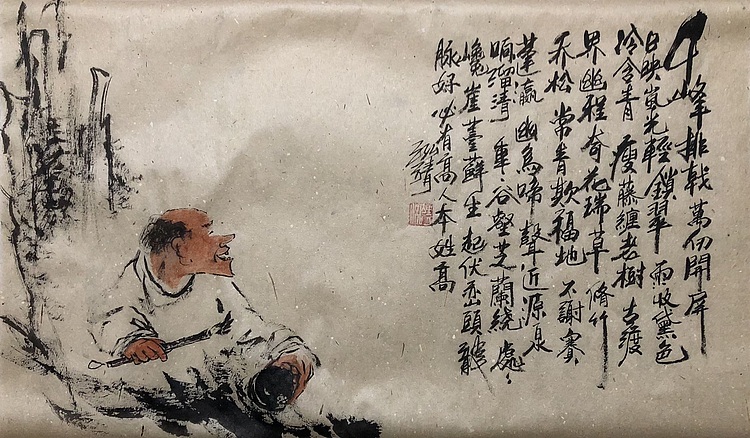 千峰排戟萬仞開屏
日映嵐光輕鎖翠 雨收黛色
冷含青 瘦藤纏老樹 古渡
界幽程 奇花瑞草 脩竹
乔松 常青欺福地 不謝賽
蓬瀛 幽鳥啼聲近 源泉
响溜清 重、谷壑芝蘭繞 處、
巉崖薹蘚生 起伏巒頭龍
脉好 必有高人本姓高